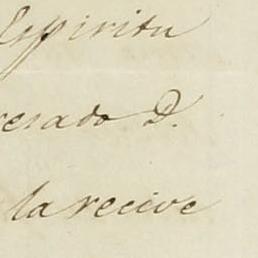 Espiritu
resado D.
la recive